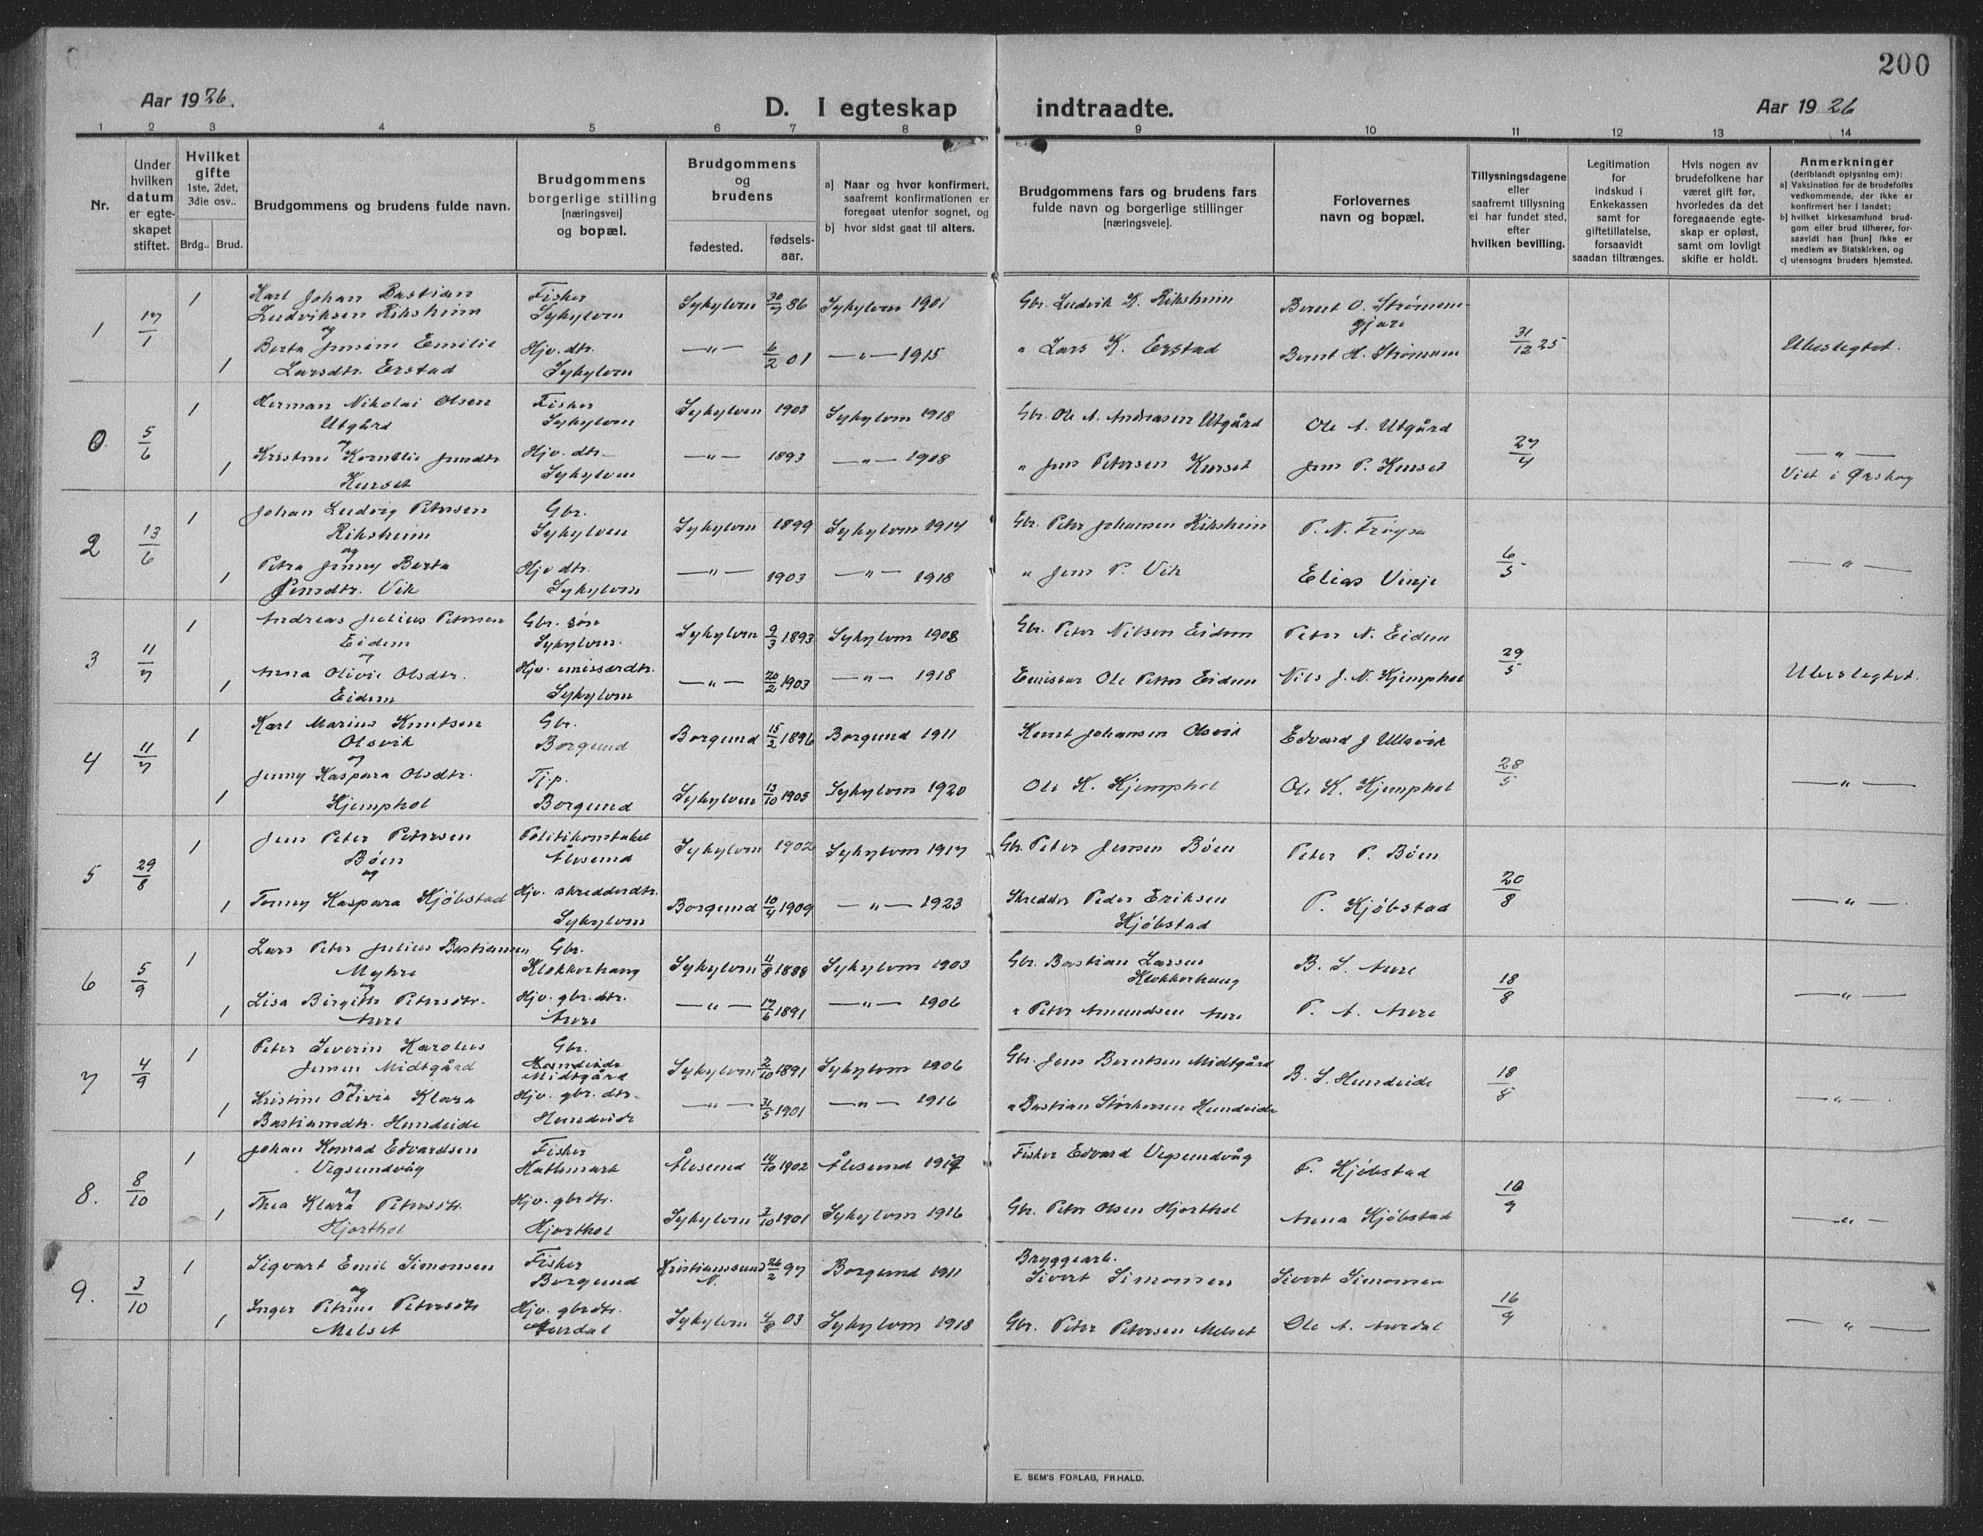 200
Aar 1926.
D. I egteskap indtraadte.
Aar 1926
1 2 3 4 5 6 7 8 9 10 11 12 13 14
Nr.
Under hvilken datum er egteskapet stiftet.
Hvilket gifte 1ste, 2det, 3die osv..
Brdg.. Brud.
Brudgommens og brudens fulde navn.
Brudgommens borgerlige stilling [næringsvei] og bopæl.
Brudgommens og brudens
fødested.
fødsels-aar.
a] Naar og hvor konfirmert, saafremt konfirmationen er foregaat utenfor sognet, og
b] hvor sidst gaat til alters.
Brudgommens fars og brudens fars fulde navn og borgerlige stillinger [næringsveie].
Forlovernes navn og bopæl.
Tillysningsdagene eller saafremt tillysning ei har fundet sted, efter hvilken bevilling.
Legitimation for indskud i Enkekassen samt for giftetillatelse, forsaavidt saadan tiltrænges.
Hvis nogen av brudefolkene har været gift før, hvorledes da det foregaaende egteskap er opløst, samt om lovligt skifte er holdt.
Anmerkninger (deriblandt oplysning om): a] Vaksination for de brudefolks vedkommende, der ikke er konfirmert her i landet; b] hvilket kirkesamfund brudgom eller brud tilhører, forsaavidt han [hun] ikke er medlem av Statskirken, og c] utensogns bruders hjemsted.
1 17/1 1 Karl Johan Bastian Fisker Sykylven 30/7 86 Sykylven 1901 Gbr. Ludvik K. Riksheim Bernt O. Strømme-
Ludviksen Riksheim Sykylven gjære 31/12 25 Ubeslegtet.
og
1 Berta Jensine Emilie Hjv. dtr. —"— 6/2 01 —"— 1915 " Lars K. Erstad Bernt H. Strømme
Larsdtr. Erstad Sykylven
0. 5/6 1 Herman Nikolai Olsen Fisker Sykylven 1903 Sykylven 1918 Gbr. Ole A. Andreasen Utgård Ole A. Utgård 27/4
Utgård Sykylven
og
1 Kristine Kornelie Jensdtr Hjv. dtr. —"— 1893 —"— 1908 " Jens Petersen Kurset Jens P. Kurset —"—
Kurset Sykylven Viet i Ørskog
2 13/6 1 Johan Ludvig Petersen Gbr. Sykylven 1899 Sykylven 1914 Gbr. Peter Johansen Riksheim P. N. Frøysa 6/5
Riksheim Sykylven
og
1 Petra Jenny Berta Hjv dtr. —"— 1903 —"— 1918 " Jens P. Vik Elias Vinje —"—
Jensdtr. Vik Sykylven
3 11/7 1 Andreas Julius Petersen Gbr. søn Sykylven 9/3 1893 Sykylven 1908 Gbr. Peter Nilsen Eidem Peter N. Eidem 29/5
Eidem Sykylven.
og
1 Anna Olivie Olsdtr. Hjv. emissærdtr. —"— 20/2 1903 —"— 1918 Emissær Ole Petter Eidem Nils J. N. Hjemphol Ubeslegtet.
Eidem Sykylven
4 11/7 1 Karl Marius Knutsen Gbr. Borgund 15/2 1896 Borgund 1911 Knut Johansen Olsvik Edvard J Ullsvik 28/5
Olsvik Borgund
og
1 Jenny Kaspara Olsdtr. Tj.p. Sykylven 13/10 1905 Sykylven 1920 Ole K. Hjemphol Ole K. Hjemphol —"—
Hjemphol Borgund
5 29/8 1 Jens Peter Petersen Politikonstabel Sykylven 1902 Sykylven 1917 Gbr. Peter Jensen Bøen Peter P. Bøen 20/8
Bøen Ålesund
og
1 Tomny Kaspara Hjøbstad Hjv. skredderdtr. Borgund 10/4 1909 —"— 1923 Skredder Peder Eriksen P. Hjøbstad —"—
Sykylven Hjøbstad
6 5/9 1 Lars Peter Julius Bastiansen Gbr. Sykylven 11/8 1888 Sykylven 1903 Gbr. Bastian Larsen B. L. Aure 18/8
Myhre Klokkerhaug Klokkerhaug
og
1 Lisa Birgitte Petersdtr. Hjv. gbr. dtr. —"— 17/6 1891 —"— 1906 " Peter Amundsen Aure P. A. Aure —"—
Aure Aure
7 4/9 1 Peter Severin Karolus Gbr. Sykylven 2/10 1891 Sykylven 1906 Gbr. Jens Berntsen Midtgård B. S. Hundeide 18/8
Jensen Midtgård Midtgård
og
1 Kristine Olivia Klara Hjv. gbr. dtr. —"— 31/5 1901 —"— 1916 " Bastian Størkersen Hundeide —"—
Bastiansdtr. Hundeide Hundeide
8. 8/10 1 Johan Konrad Edvardsen Fisker Ålesund 14/10 1902 Ålesund 1917 Fisker Edvard Vegsundvåg P. Hjøbstad 10/9
Vegsundvåg Hatlemark
og
1 Thea Klara Petersdtr. Hjv. gbrdtr. Sykylven 3/10 1901 Sykylven 1916 Gbr. Peter Olsen Hjorthol Anna Hjøbstad —"—
Hjorthol Hjorthol
9. 3/10 1 Sigvart Emil Simonsen Fisker Kristiansund N. 26/2 97 Borgund 1911 Bryggearb. Sivert Simonsen Sivert Simonsen 16/9
og Borgund
1 Inger Petrine Petersdtr Hjv. gbrdtr. Sykylven 4/8 03 Sykylven 1918 Gbr. Peter Petersen Melset Ole A. Aurdal —"—
Melset Aurdal
E. SEM'S FORLAG, FR.HALD.